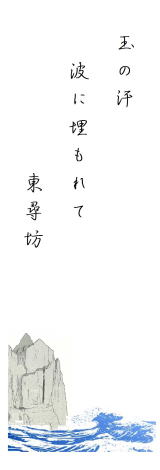 玉の汗
波に埋もれて
東尋坊